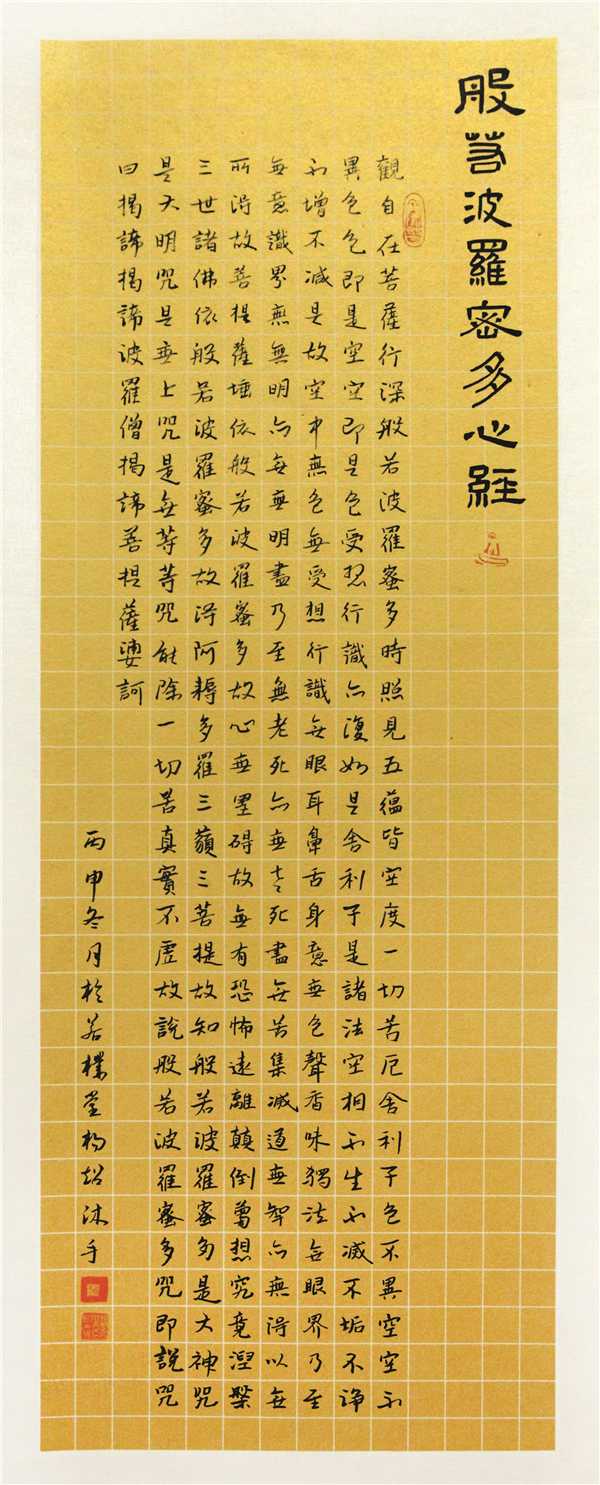 般若波羅密多心經
觀自在菩薩行深般若波羅蜜多時照見五蘊皆空度一切苦厄舍利子色不異空空不
異色色即是空空即是色受想行識亦復如是舍利子是諸法空相不生不滅不垢不淨
不增不減是故空中無色無受想行識無眼耳鼻舌身意無色聲香味觸法無眼界乃至
無意識界無無明亦無無明盡乃至無老死亦無老死盡無苦集滅道無智亦無得以無
所得故菩提薩埵依般若波羅蜜多故心無罣碍故無有恐怖遠離顛倒夢想究竟涅槃
三世諸佛依般若波羅蜜多故得阿耨多羅三藐三菩提故知般若波羅蜜多是大神咒
是大明咒是無上咒是無等等咒能除一切苦真實不虛故說般若波羅蜜多咒即說咒
曰揭諦揭諦波羅僧揭諦菩提薩婆訶
丙申冬月於若樸堂楊超沐手